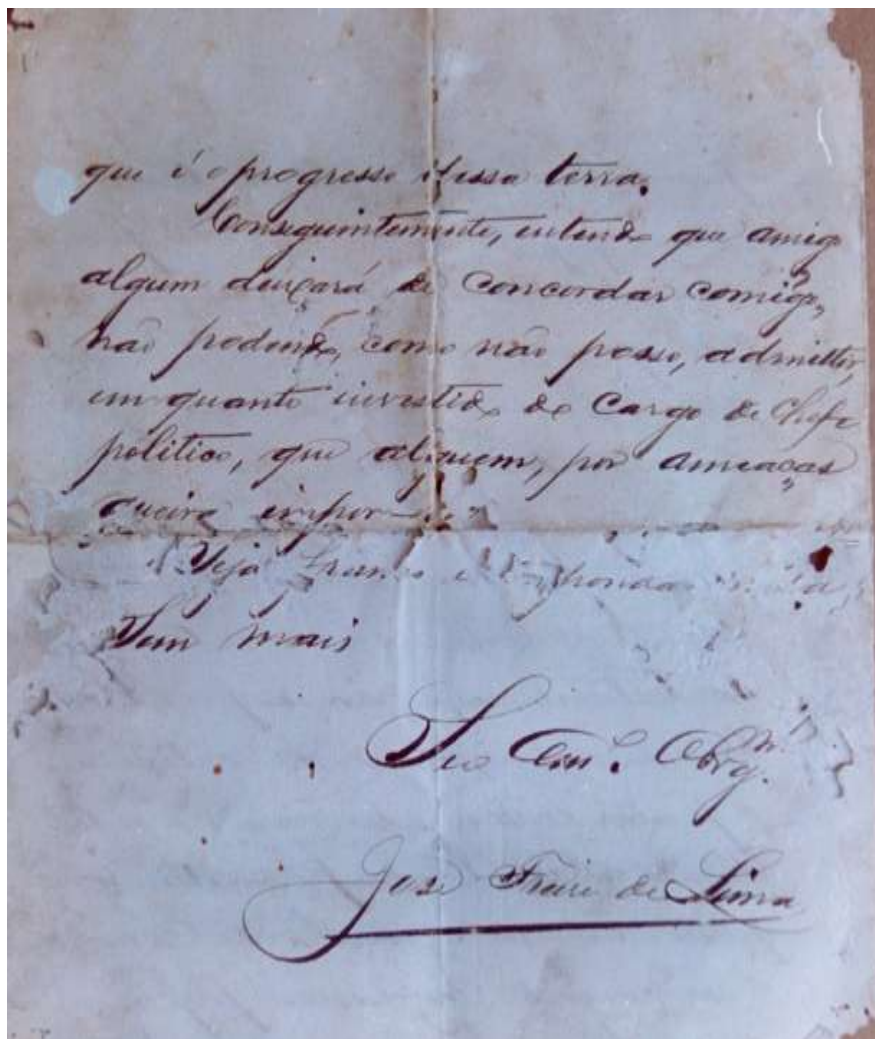 que é o progresso dessa terra.
Conseguintemente, entendo que amigo
algum deixará de concordar comigo,
não podendo, como não posso, admittir,
em quanto investido do cargo de chefe
politico, que alguem, por ameaças
queira impor
Veja
Sem mais
Seo Am.º Obrg.
José Freire de Lima